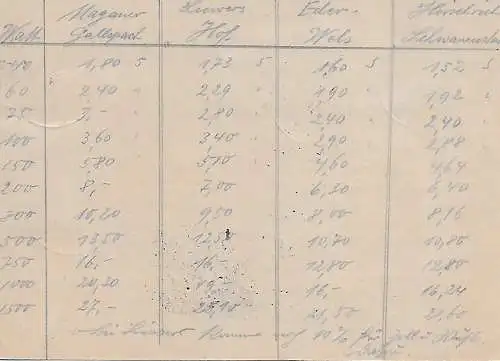 Maganer Luwers Eder- Hirschrich
Watt Gallspach Hof Wels
-40 1,80 S 1,73 S 1,60 S 1,52 S
60 2,40 " 2,29 " 1,90 " 1,92 "
75 3,- " 2,80 " 2,40 " 2,40 "
100 3,60 " 3,40 " 2,90 " 2,88 "
150 5,80 5,10 " 4,60 4,64
200 8,- 7,00 6,30 6,40
300 10,20 9,50 8,00 8,16
500 13,50 12,50 10,70 10,80
750 16,- 16,- 12,80 12,80
1000 20,30 19,- 16,- 16,24
1500 27,- 25,90 21,50 21,60
bei Luwers kommen noch 10% für Zoll u.